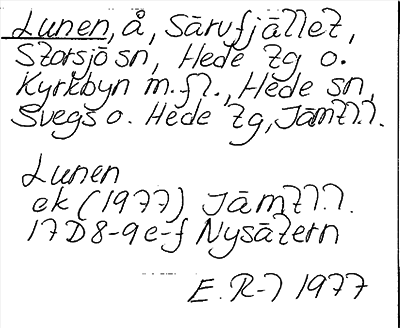 Lunen, å, Särvfjället,
Storsjö sn, Hede tg o.
Kyrkbyn m.fl., Hede sn,
Svegs o. Hede tg, Jämtl.l.
Lunen
ek (1977) Jämtl.l.
17D8-9e-f Nysätern
E. R-l 1977